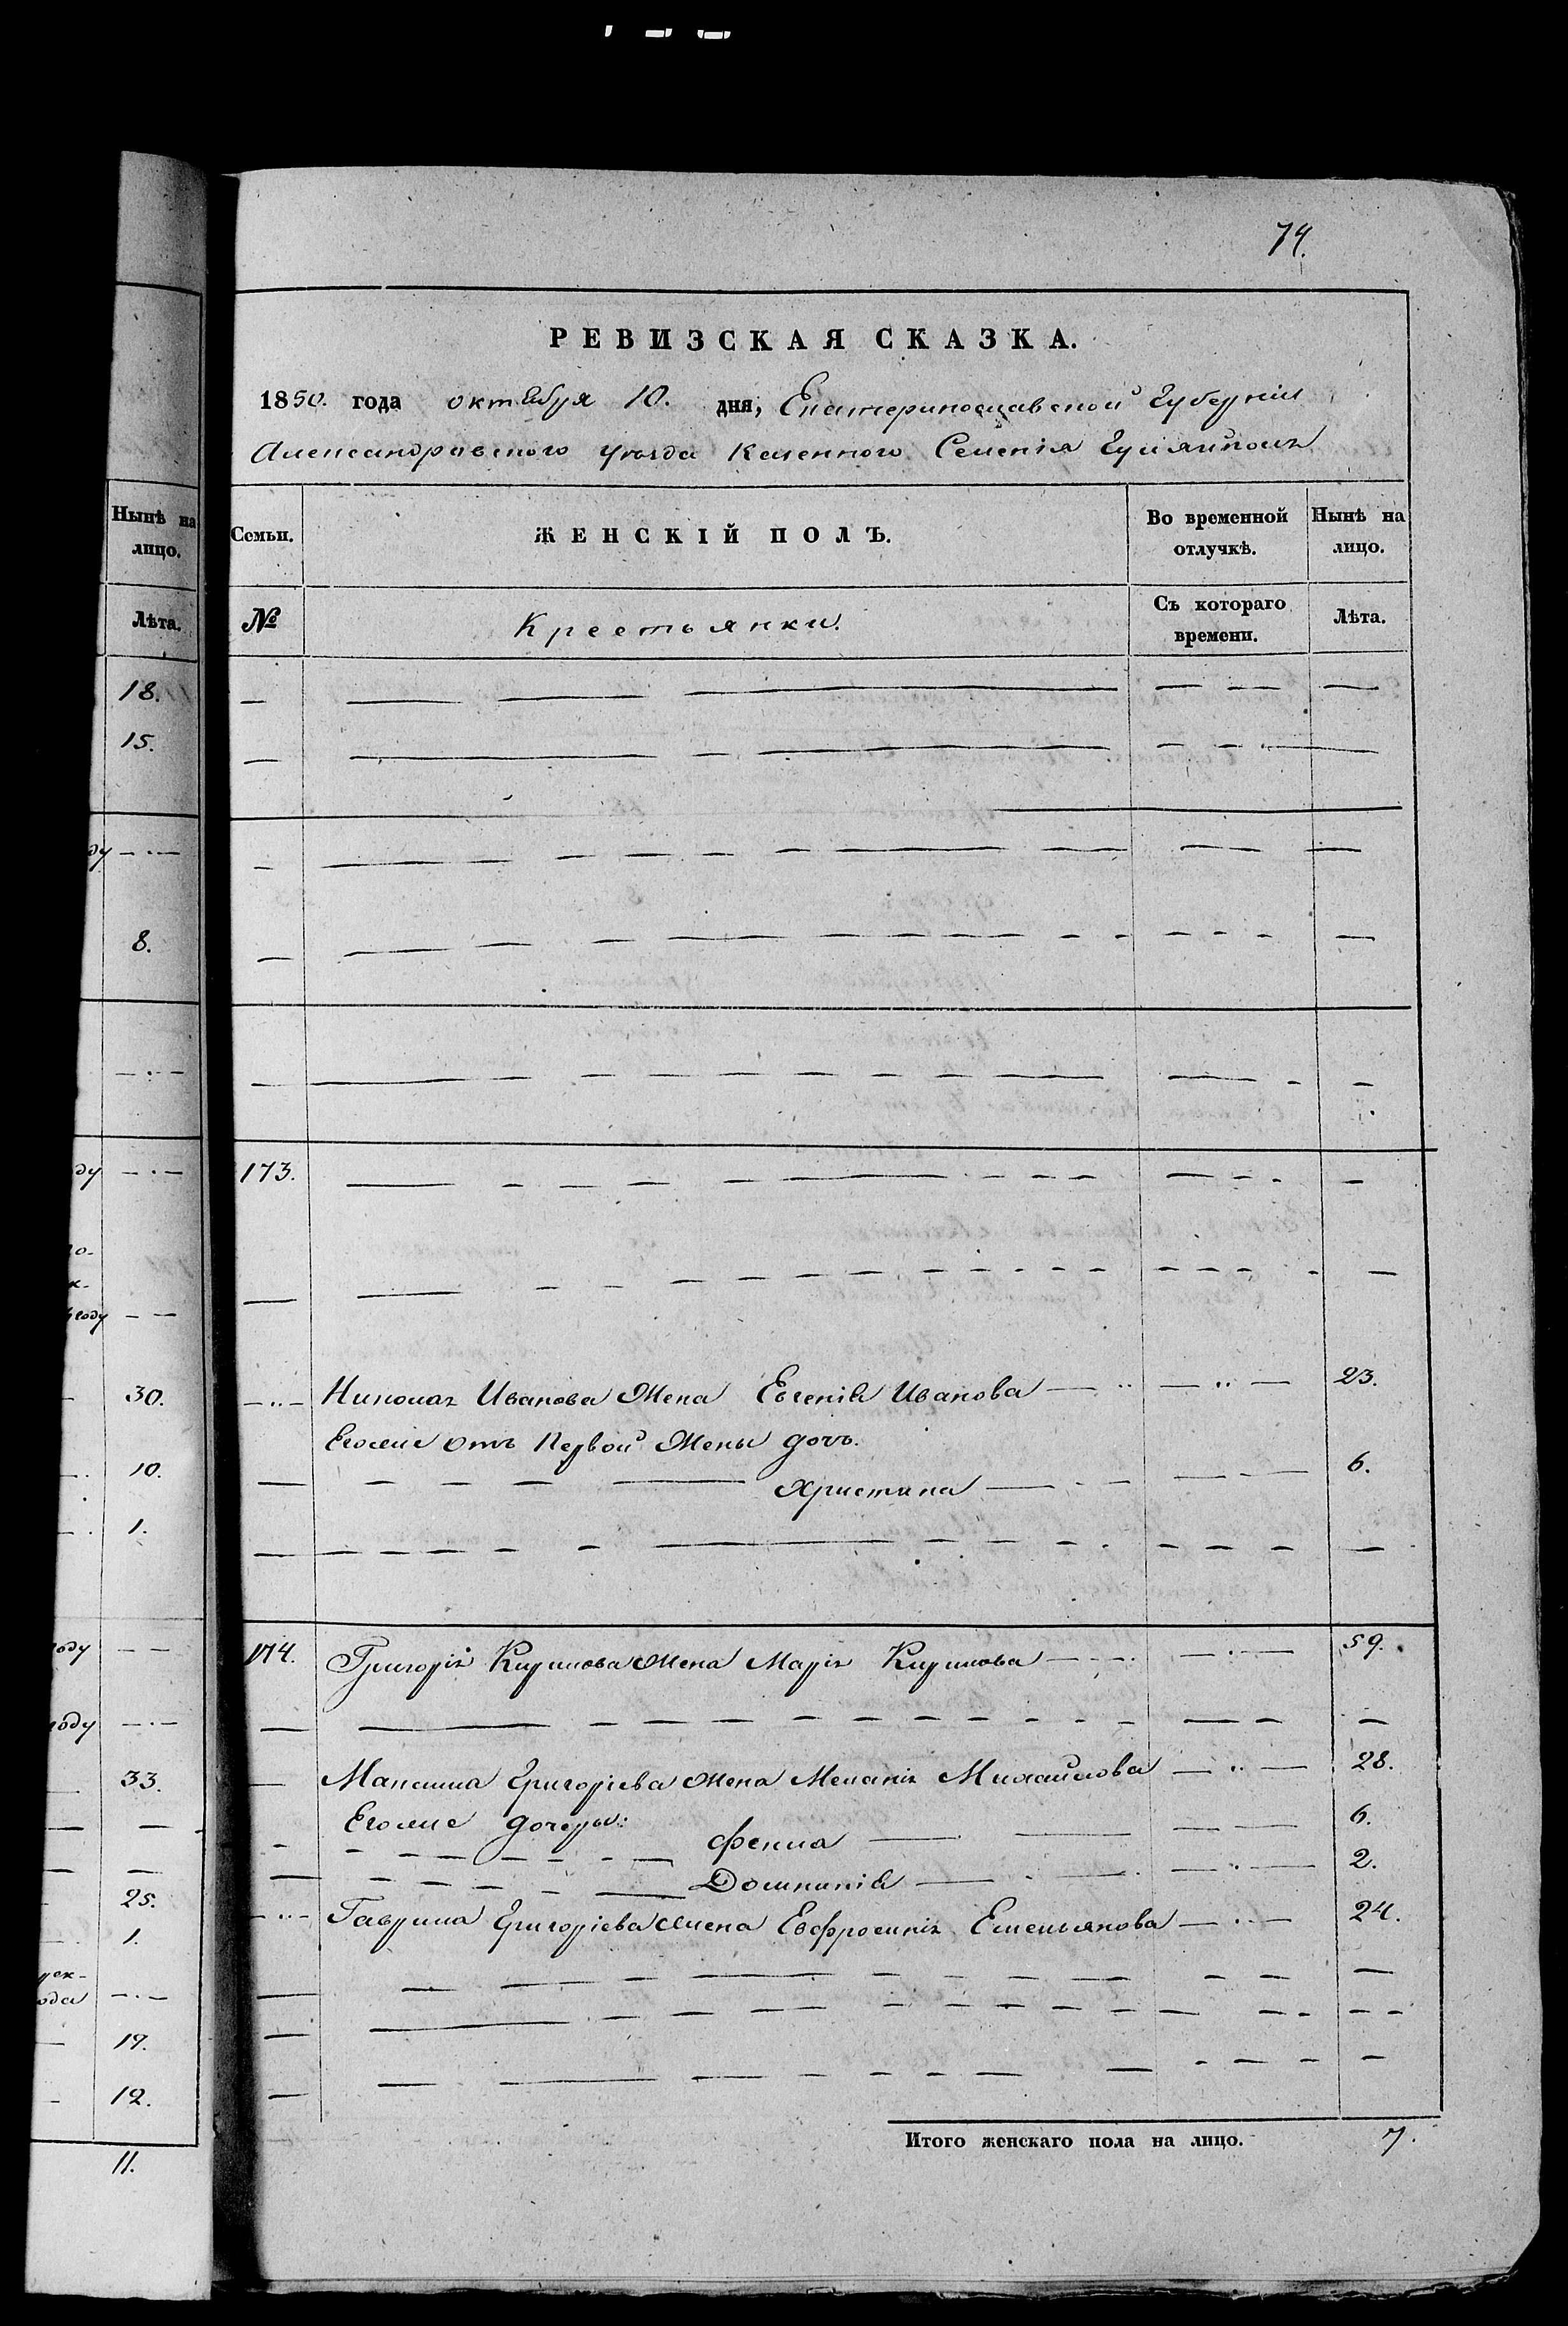 74.
РЕВИЗСКАЯ СКАЗКА.
1850. года октября 10. дня, Екатеринославской Губерніи
Александровского уѣзда Казенного Селенія Гуляйполь
Нынѣ на лицо.
Лѣта.
18.
15.
ду
8.
ду
году
30.
10.
1.
году
году
33.
25.
1.
ода
19.
12.
11.
Семьи.
ЖЕНСКІЙ ПОЛЪ.
Во временной отлучкѣ.
Нынѣ на лицо.
№
Крестьянки.
Съ котораго времени.
Лѣта.
173.
Николая Иванова Жена Евгенія Иванова 23.
Егоже отъ Первой Жены дочь.
Христина 6.
174. Григорія Кирилова Жена Марія Кирилова 59.
Максима Григоріева Жена Меланія Михайлова 28.
Егоже дочеры:
Фекла 6.
Домникія 2.
Гаврила Григоріева жена Евфросинія Емельянова 24.
Итого женскаго пола на лицо. 7.